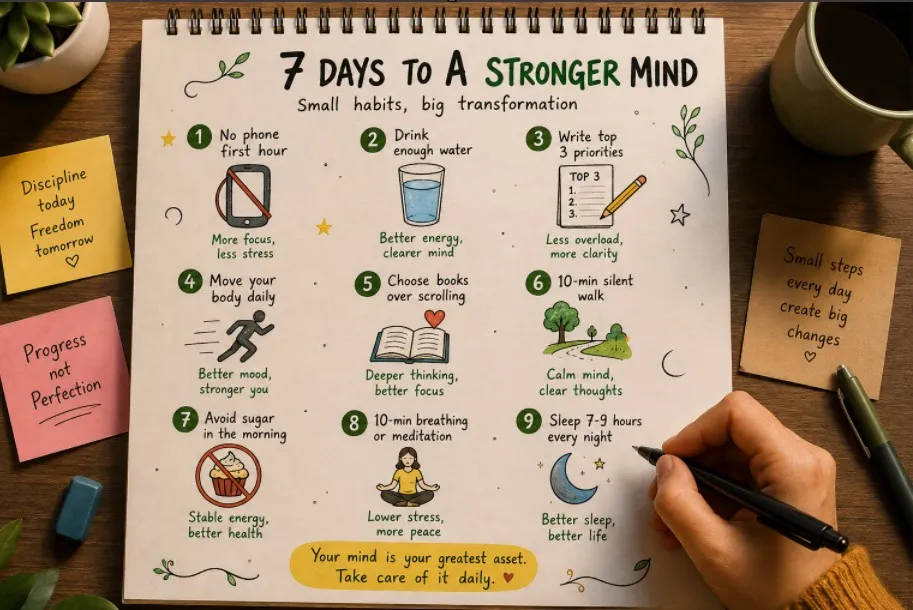 7 DAYS TO A STRONGER MIND
Small habits, big transformation
1 No phone
first hour
More focus,
less stress
2 Drink
enough water
Better energy,
clearer mind
3 Write top
3 priorities
TOP 3
1.
2.
3.
Less overload,
more clarity
4 Move your
body daily
Better mood,
stronger you
5 Choose books
over scrolling
Deeper thinking,
better focus
6 10-min silent
walk
Calm mind,
clear thoughts
7 Avoid sugar
in the morning
Stable energy,
better health
8 10-min breathing
or meditation
Lower stress,
more peace
9 Sleep 7-9 hours
every night
Better sleep,
better life
Your mind is your greatest asset.
Take care of it daily.
Discipline
today
Freedom
tomorrow
Progress
not
Perfection
Small steps
every day
create big
changes